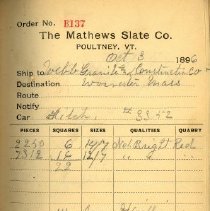 Order No. B137
The Mathews Slate Co.
POULTNEY, VT.
Oct 3 1896
Ship to Webb Granite & Construction Co
Destination Worcester Mass
Route
Notify
Car Fitch. # 3352
PIECES SQUARES SIZES QUALITIES QUARRY
2250 6 14/7 No 1 Bright Red
12/7 " "
22